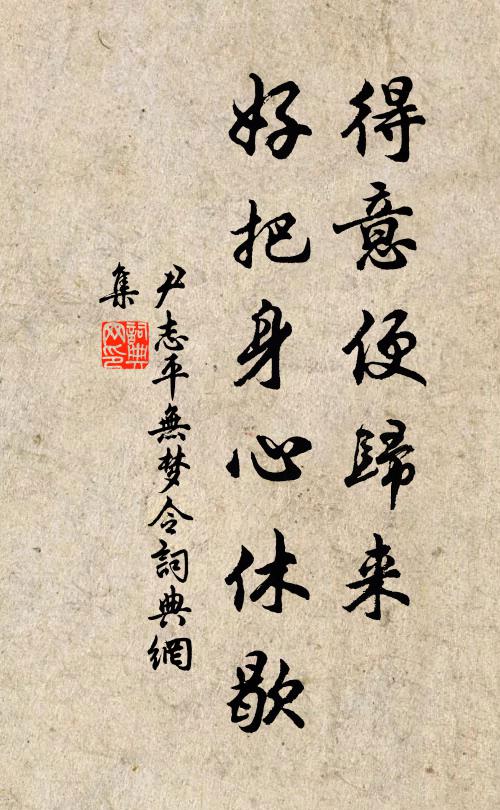 得意便歸来
好把身心休歇
尹志平無梦令詞典網
集
詞典网印